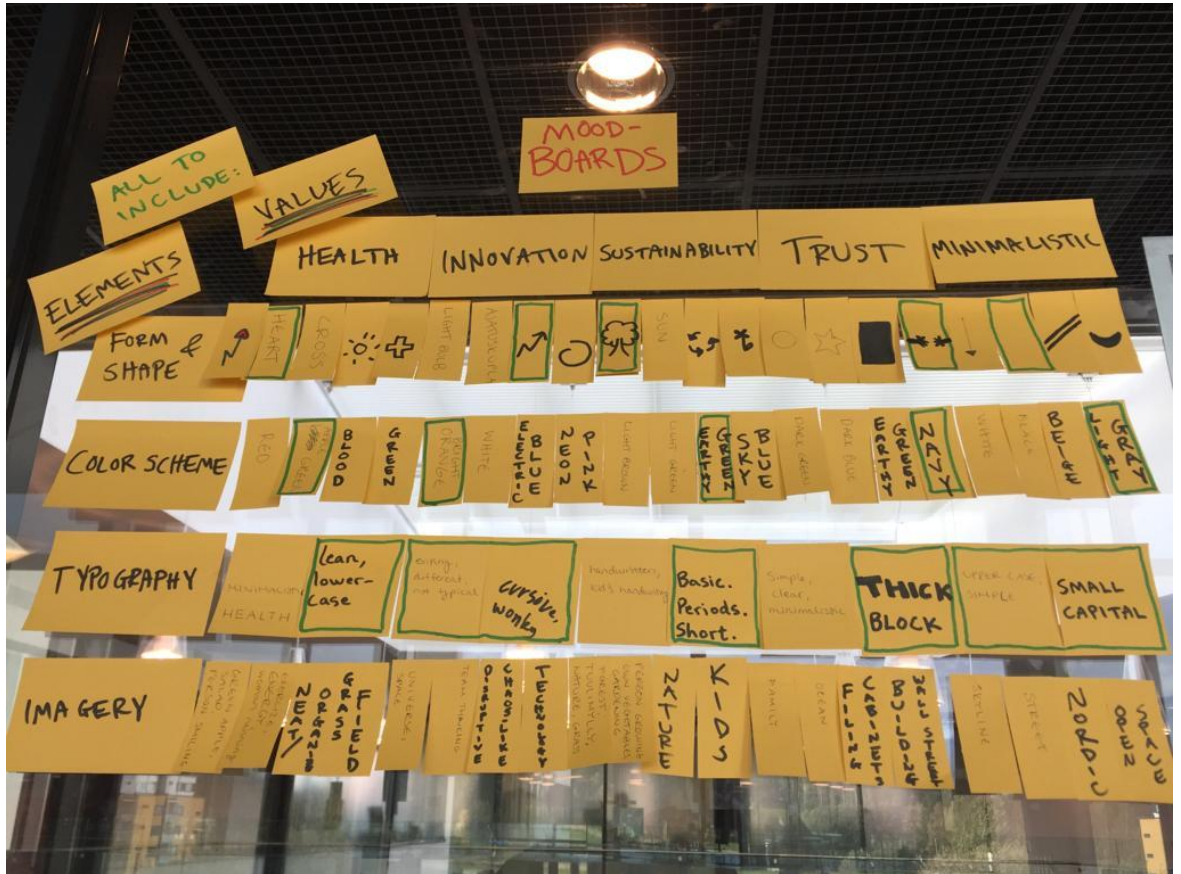 MOOD-
BOARDS
ALL TO
INCLUDE:
VALUES
ELEMENTS
HEALTH
INNOVATION
SUSTAINABILITY
TRUST
MINIMALISTIC
FORM &
SHAPE
HEART
CROSS
LIGHT BULB
SUN
COLOR SCHEME
RED
GREEN
BLOOD
GREEN
BRIGHT
ORANGE
WHITE
ELECTRIC
BLUE
NEON
PINK
LIGHT BROWN
LIGHT GREEN
EARTHY
GREEN
SKY
BLUE
DARK GREEN
DARK BLUE
EARTHY
GREEN
NAVY
WHITE
BLACK
BEIGE
LIGHT
GRAY
TYPOGRAPHY
HEALTH
lean,
lower-
case
different,
not typical
cursive,
wonky
handwritten,
kid's handwriting
Basic.
Periods.
Short.
Simple,
clear,
minimalistic
THICK
BLOCK
UPPER CASE,
SIMPLE
SMALL
CAPITAL
IMAGERY
PERSON SMILING
NEAT/
ORGANIS
GRASS
FIELD
UNIVERSE,
SPACE
TEAM THINKING
DISRUPTIVE
CHAOS LIKE
TECHNOLOGY
PERSON GROWING
OWN VEGETABLES
GARDENING
FOREST
NATURE GRASS
NATURE
KIDS
FAMILY
OCEAN
FILING
CABINETS
BUILDING
WALL STREET
SKYLINE
STREET
NORDIC
OPEN
SPACE